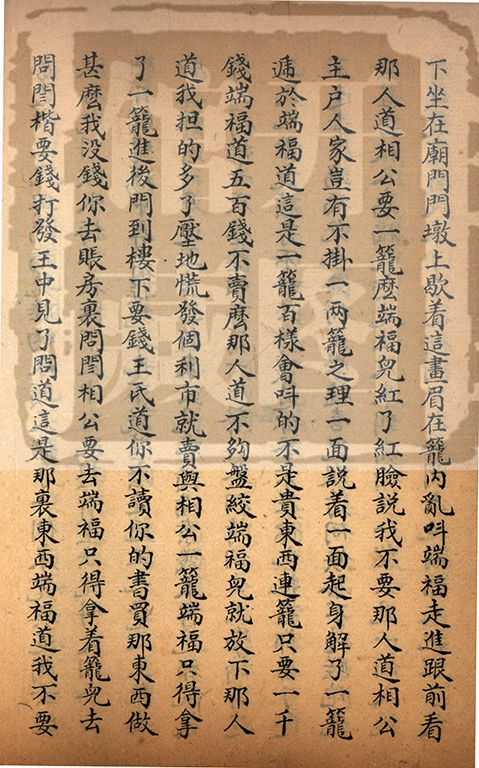 下坐在廟門門墩上歇着這畫眉在籠內亂呌端福走進跟前看
那人道相公要一籠麼端福兒紅了紅臉說我不要那人道相公
主户人家豈有不掛一两籠之理一面説着一面起身解了一籠
遞於端福道這是一籠百樣會呌的不是貴東西連籠只要一千
錢端福道五百錢不賣麼那人道不夠盤絞端福兒就放下那人
道我担的多了壓地慌發個利市就賣與相公一籠端福只得拿
了一籠進後門到樓下要錢王氏道你不讀你的書買那東西做
甚麼我没錢你去賬房裏問閆相公要去端福只得拿着籠兒去
問閆楷要錢打發王中見了問道這是那裏東西端福道我不要